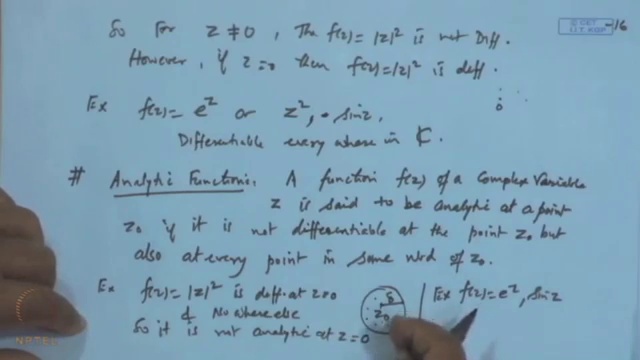 So For z ≠ 0, The f(z) = |z|² is not Diff.
However, if z = 0 then f(z) = |z|² is diff.
Ex f(z) = e^z or z², sin z
Differentiable every where in ℂ.
# Analytic Function: A function f(z) of a Complex Variable
z is said to be analytic at a point
z₀ if it is not differentiable at the point z₀ but
also at every point in some nbd of z₀.
Ex f(z) = |z|² is diff. at z=0
& No where else
So it is not analytic at z=0
δ
z₀
Ex f(z) = e^z, sin z
© CET
I.I.T. KGP
-16
0
NPTEL